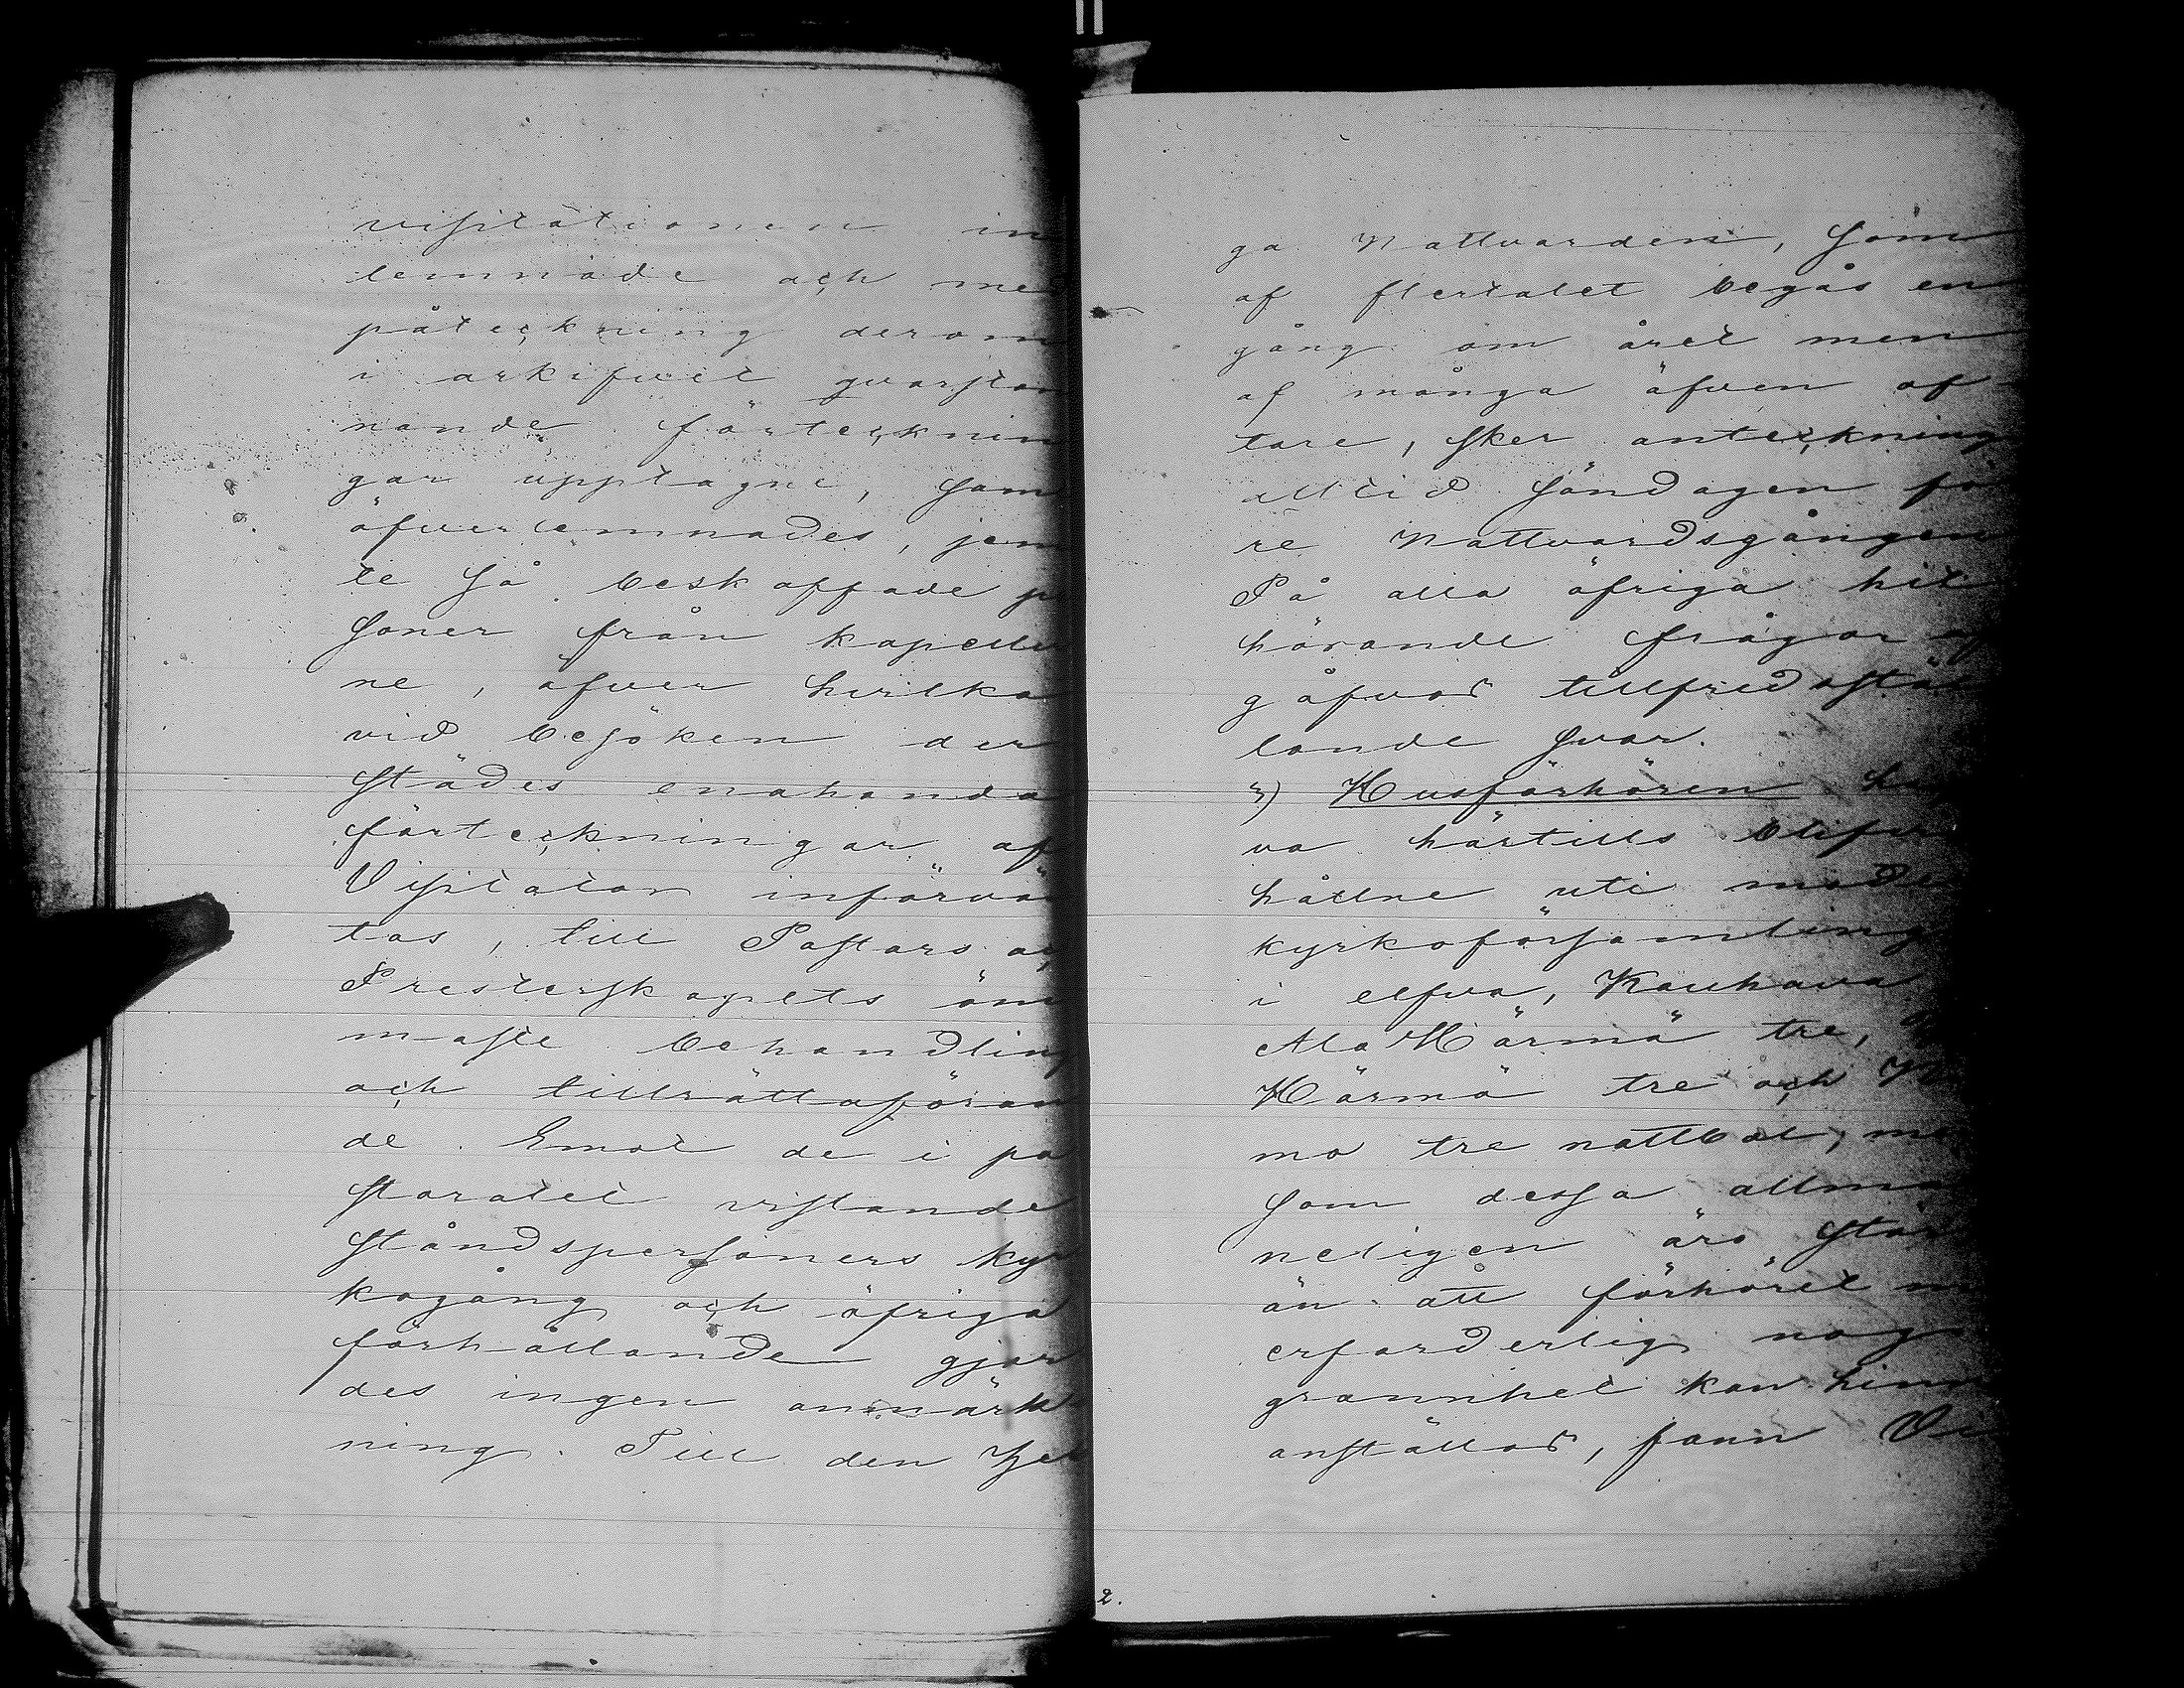 visitationen in
lemnade och med
påteckning derom
i arkifvet qvarstan
nande förtecknin
gar upptagne, som
öfverlemnades, jem
te så beskaffade p
soner från kapelle
ne, öfver hvilka
vid besöken der
städes enahanda
förteckningar af
Visitator införvä
tas, till Pastors oc
Presterskapets öm
maste behandling
och tillrättaföran
de. Emot de i pa
storatet vistande
ståndspersoners kyr
kogång och öfriga
förhållande gjor
des ingen anmärk
ning. Till den hel
ga Nattvarden, som
af flertalet begås en
gång om året men
af många äfven of
tare, sker anteckning
alltid söndagen fö
re Nattvardsgången
På alla öfriga hit
hörande frågor af
gåfvos tillfredsstäl
lande svar.
Husförhören ha
va härtills blifvi
hållne uti moder
kyrkoförsamling
i elfva, Kauhava
Ala Härmä tre,
Härmä tre och
mo tre nattbol, me
som dessa allmä
neligen äro stör
än att förhöret m
erforderlig nog
grannhet kan hinn
anställas, fann Vi
2.